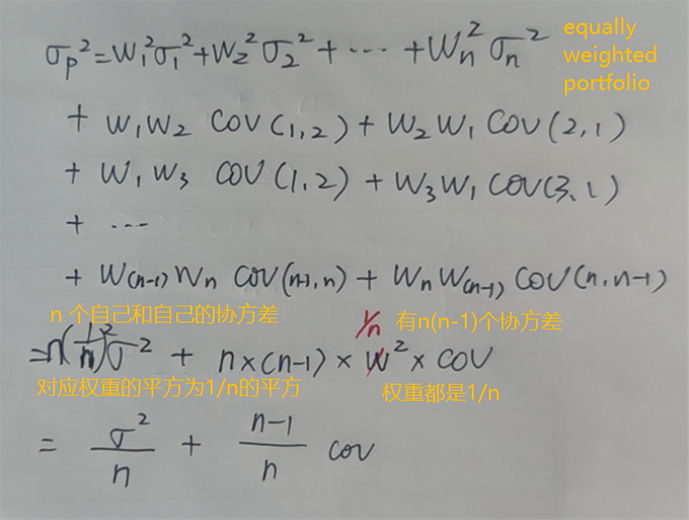 σp²=W₁²σ₁²+W₂²σ₂²+⋯+Wn²σn²
equally
weighted
portfolio
+ W₁W₂ COV(1,2)+W₂W₁COV(2,1)
+ W₁W₃ COV(1,2)+W₃W₁COV(3,1)
+ ⋯
+ W(n-1)Wn COV(n-1,n)+WnW(n-1)COV(n,n-1)
n 个自己和自己的协方差
1/n 有n(n-1)个协方差
=n(1/n)²σ² + n×(n-1)×W²×COV
对应权重的平方为1/n的平方
权重都是1/n
= σ²/n + n-1/n cov